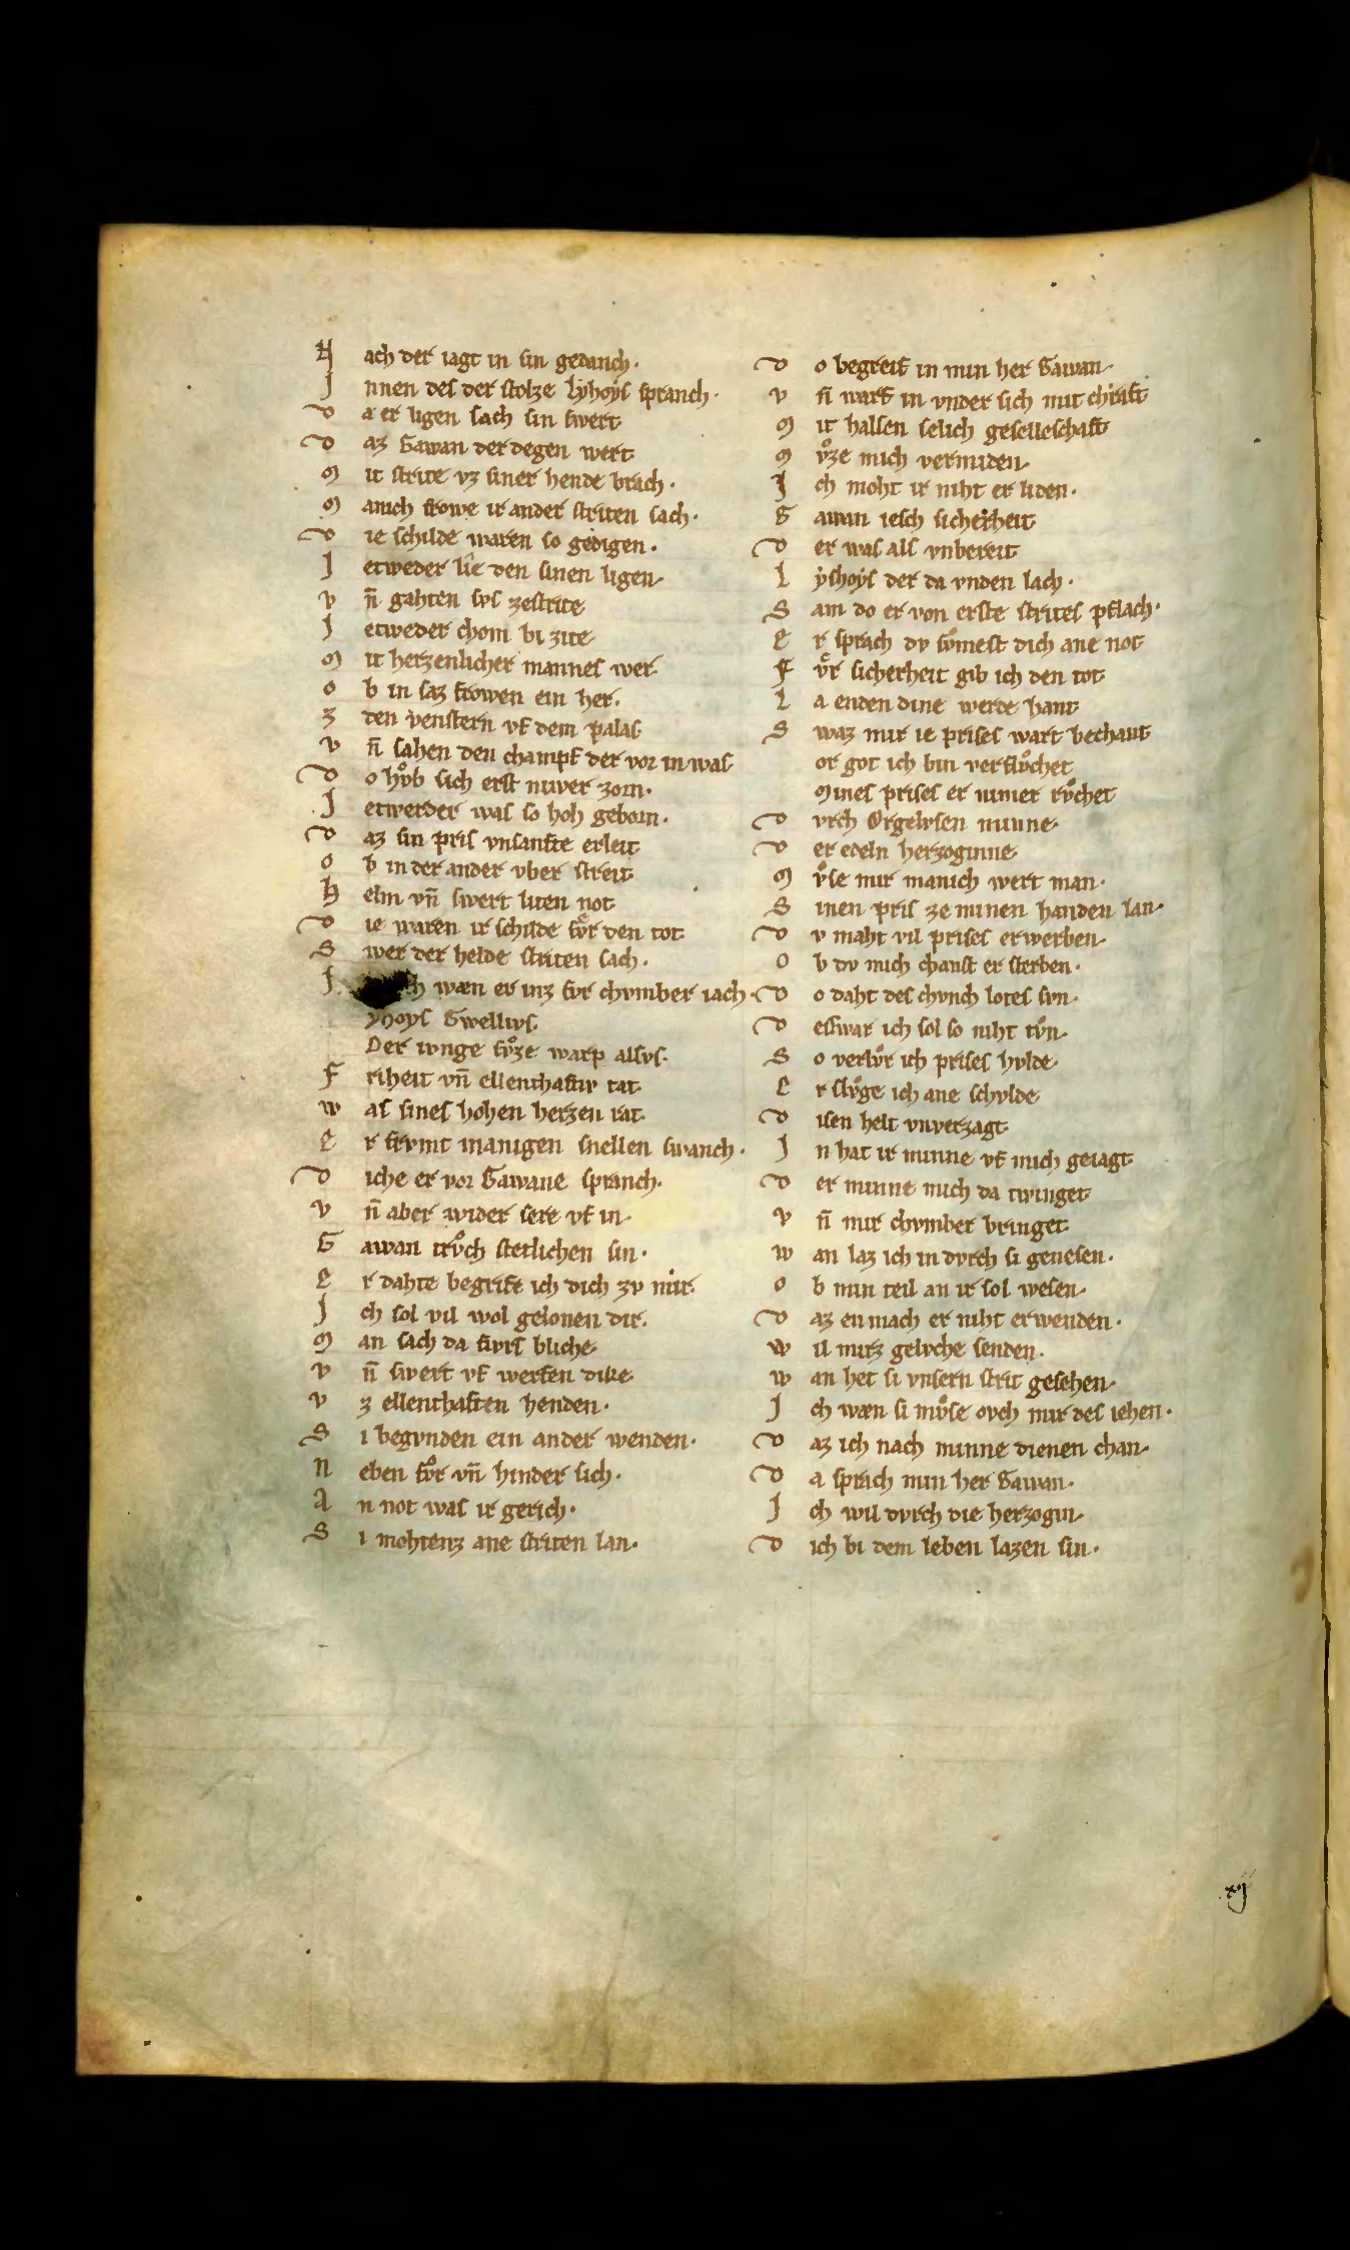 N ach der iagt in sin gedanch·
J nnen des der stolze lẏhoẏs spranch·
D a er ligen sach sin swert
D az Gawan der degen wert
M it strite vz siner hende brach·
M anich frowe ir ander striten sach·
D ie schilde waren so gedigen·
J etweder lîe den sinen ligen
V n̄ gahten svs zestrite
J etweder chom bi zite
M it herzenlicher mannes wer
O b in saz frowen ein her·
Z den venstern vf dem palas
V n̄ sahen den champf der vor in was
D o hvͦb sich erst niwer zorn·
J etwerder was so hoh geborn·
D az sin pris vnsanfte erleit
O b in der ander vber streit
H elm vn̄ swert liten not
D ie waren ir schilde fvͤr den tot
S wer der helde striten sach·
J h wæn er inz fvr chvmber iach·
yhoys Gwellivs
Der ivnge svͦze warp alsvs·
F riheit vn̄ ellenthaftiv tat
W as sines hohen herzen rat
E r frvmt manigen snellen swanch·
D iche er vor Gawane spranch·
V n̄ aber wider sere vf in
G awan trvͦch stetlichen sin·
E r dahte begrife ich dich zv mir
J ch sol vil wol gelonen dir·
M an sach da fivrs bliche
V n̄ swert vf werfen dike
V z ellenthaften henden·
S i begvnden ein ander wenden·
N eben fvͦr vn̄ hinder sich·
A n not was ir gerich·
S i mohtenz ane striten lan·
D o begreif in min her Gawan
V n̄ warf in vnder sich mit chraft
M it halsen selich geselleschaft
M vͦze mich vermiden
J ch moht ir niht er liden·
G awan iesch sicherheit
D er was als vnbereit
L ẏshoẏs der da vnden lach·
S am do er von erste strites pflach·
E r sprach dv svͦmest dich ane not
F vͤr sicherheit gib ich den tot
L a enden dine werde hant
S waz mir ie prises wart bechant
or got ich bin verflvͦchet
Mines prises er nimer rvͦchet
D vrch Orgelvsen minne
D er edeln herzoginne
M vͦse mir manich wert man·
S inen pris ze minen handen lan·
D v maht vil prises erwerben
O b dv mich chanst er sterben·
D o daht des chvnch lotes svn·
D eswar ich sol so niht tvͦn
S o verlvͦr ich prises hvlde
E r slvͦge ich ane schvlde
D isen helt vnverzagt
J n hat ir minne vf mich geiagt
D er minne mich da twinget
V n̄ mir chvmber bringet
W an laz ich in dvrch si genesen·
O b min teil an ir sol wesen
D az en mach er niht erwenden·
W il mirz gelvche senden·
W an het si vnsern strit gesehen
J ch wæn si mvͦse ovch mir des iehen·
D az ich nach minne dienen chan
D a sprach min her Gawan·
J ch wil dvrch die herzogin
D ich bi dem leben lazen sin·